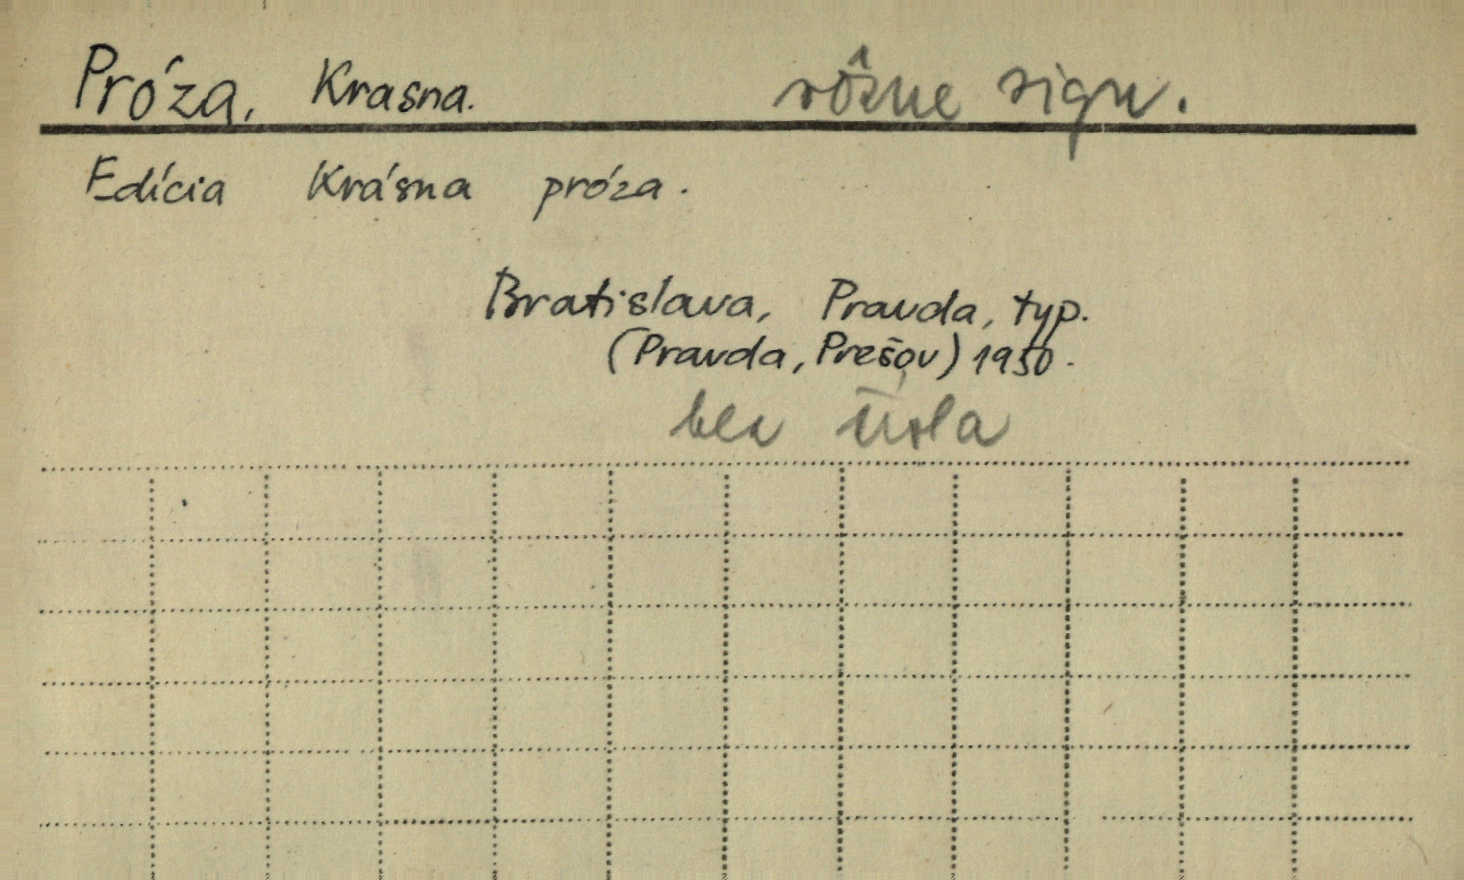 Próza, Krasna. rôzne sign.
Edícia Krásna próza.
Bratislava, Pravda, typ.
(Pravda, Prešov) 1950.
bez čísla